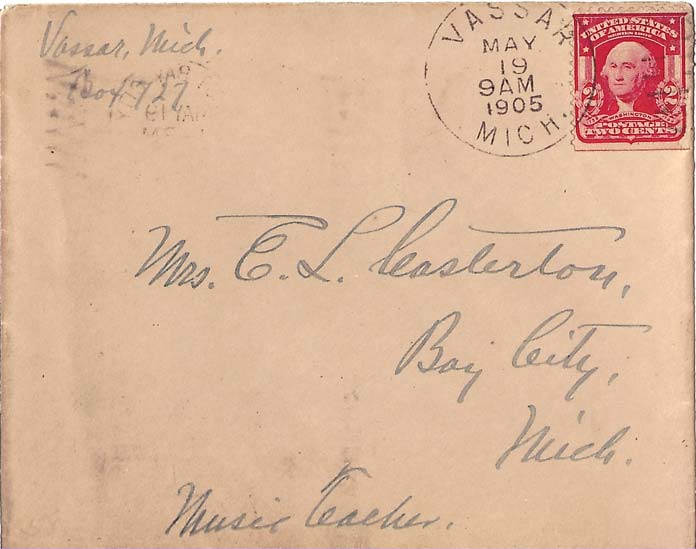 Vassar, Mich.
Box 727
VASSAR
MAY
19
9AM
1905
MICH.
UNITED STATES
OF AMERICA
SERIES 1902
2 2
WASHINGTON
POSTAGE
TWO CENTS
Mrs. E. L. Casterton,
Bay City,
Mich.
Music Teacher.